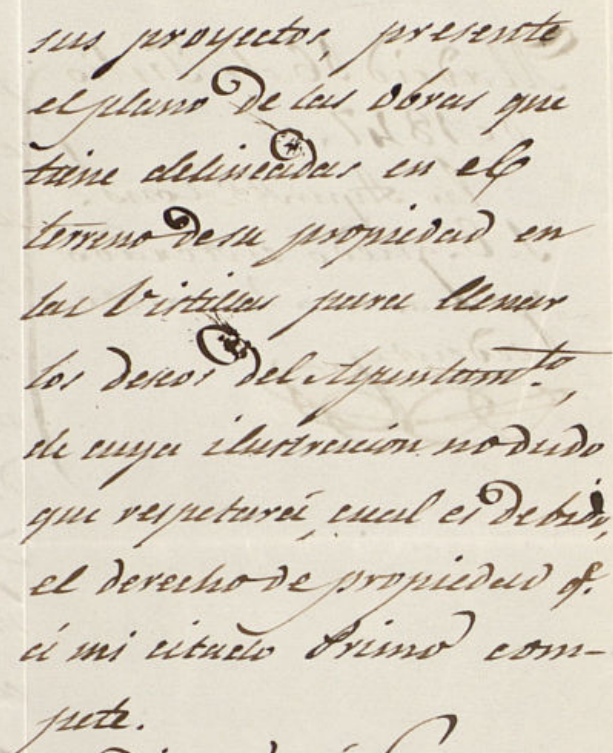 sus proyectos, presente
el plano de las obras que
tiene delineadas en el
terreno de su propiedad en
las Vistillas para llenar
los deseos del Ayuntam.to,
de cuya ilustracion no dudo
que respetará, cual es debido,
el derecho de propiedad q.e
á mi citado Primo com-
pete.